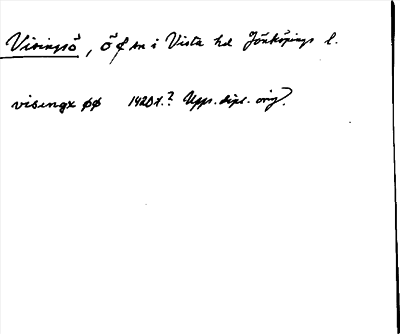 Visingsö, ö f sn i Vista hd Jönköpings l.
visingx øø 1420 t.? Upps. dipl. orig.